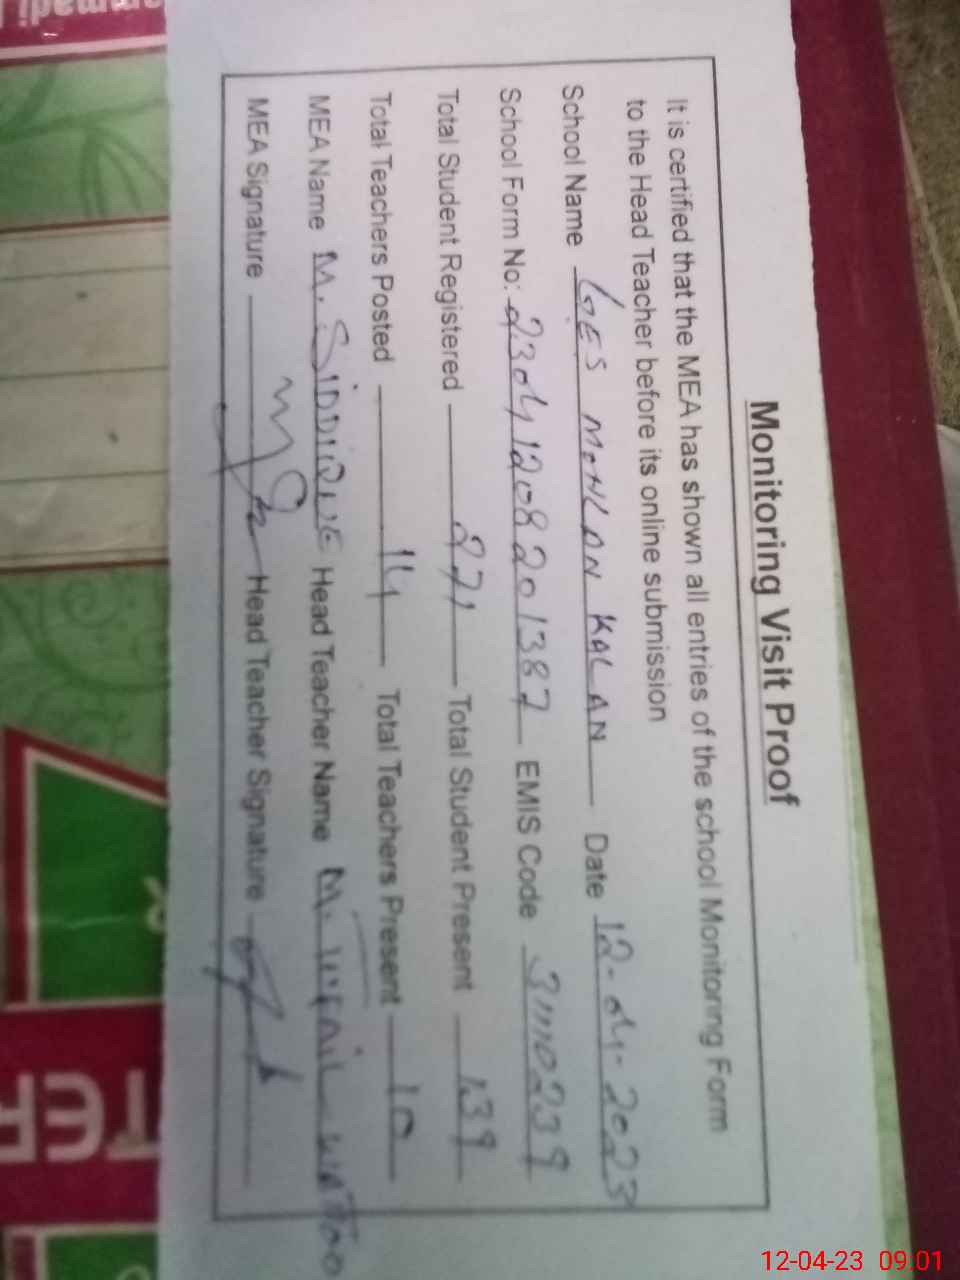 Monitoring Visit Proof
It is certified that the MEA has shown all entries of the school Monitoring Form
to the Head Teacher before its online submission
School Name GES MONLAN KALAN Date 12-04-2023
School Form No: 23041208201387 EMIS Code 31110239
Total Student Registered 271 Total Student Present 139
Total Teachers Posted 14 Total Teachers Present 10
MEA Name M. SIDDIQUE Head Teacher Name M. TUFAIL WATTOO
MEA Signature Head Teacher Signature
12-04-23 09.01